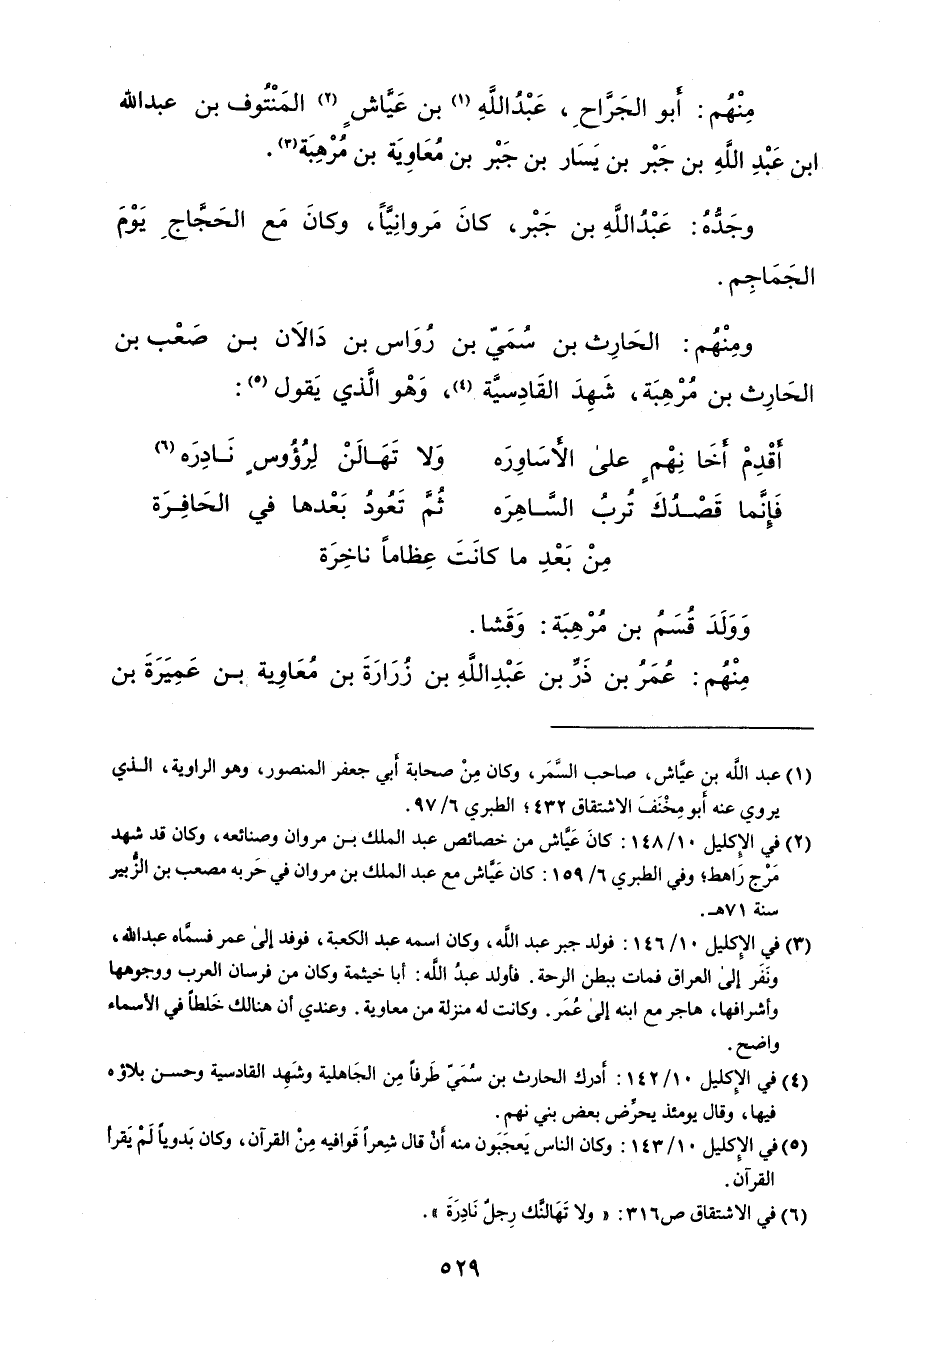 مِنْهُم: أَبو الجَرَّاحِ، عَبْدُاللَّهِ (١) بن عَيَّاشٍ (٢) المَنْتُوف بن عبدالله
ابن عَبْدِ اللَّهِ بن جَبْر بن يَسَار بن جَبْر بن مُعَاوِيَة بن مُرْهِبَة(٣).
وجَدُّهُ: عَبْدُاللَّهِ بن جَبْر، كانَ مَروانِيَّاً، وكانَ مَع الحَجَّاجِ يَوْمَ
الجَمَاجِم.
ومِنْهُم: الحَارِث بن سُمَيّ بن رُوَاس بن دَالَان بـن صَعْب بن
الحَارِث بن مُرْهِبَة، شَهِدَ القَادِسيَّة (٤)، وَهْو الَّذي يَقول (٥):
أَقْدِمْ أَخَا نِهْمٍ علىٰ الأَسَاوِرَه وَلا تَهَـالَنْ لِرُؤُوسٍ نَـادِرَه (٦)
فَإِنَّما قَصْـدُكَ تُربُ السَّـاهِرَه ثُمَّ تَعُودُ بَعْدها في الحَافِـرَة
مِنْ بَعْدِ ما كانَتَ عِظاماً ناخِرَة
وَوَلَدَ قُسَمُ بن مُرْهِبَة: وَقَشا.
مِنْهُم: عُمَرُ بن ذَرِّ بن عَبْدِاللَّهِ بن زُرَارَةَ بن مُعَاوِية بـن عَمِيَرَةَ بن
(١) عبد اللَّه بن عيَّاش، صاحب السَّمَر، وكان مِنْ صحابة أَبي جعفر المنصور، وهو الراوية، الـذي
يروي عنه أَبو مِخْنَفَ الاشتقاق ٤٣٢؛ الطبري ٦/ ٩٧.
(٢) في الإكليل ١٠/ ١٤٨: كانَ عَيَّاش من خصائص عبد الملك بـن مروان وصنائعه، وكان قد شهد
مَرْج رَاهط؛ وفي الطبري ٦/ ١٥٩: كان عَيَّاش مع عبد الملك بن مروان في حَربه مصعب بن الزُّبير
سنة ٧١هـ.
(٣) في الإكليل ١٠/ ١٤٦: فولد جبر عبد اللَّه، وكان اسمه عبد الكعبة، فوفد إلىٰ عمر فسمَّاه عبدالله،
ونَفَر إلىٰ العراق فمات ببطن الرحة. فأولد عبدُ اللَّه: أبا خيثمة وكان من فرسان العرب ووجوهها
وأشرافها، هاجر مع ابنه إلىٰ عُمَر. وكانت له منزلة من معاوية. وعندي أن هنالك خَلطاً في الأسماء
واضح.
(٤) في الإكليل ١٠/ ١٤٢: أدرك الحارث بن سُمَيّ طَرفاً مِن الجَاهلية وشَهِد القادسية وحسن بلاؤه
فيها، وقال يومئذ يحرِّض بعض بني نهم.
(٥) في الإكليل ١٠/ ١٤٣: وكان الناس يَعجَبَون منه أَنْ قال شِعراً قَوافيه مِنْ القرآن، وكان بَدوياً لَمْ يَقرأ
القرآن.
(٦) في الاشتقاق ص٣١٦: « ولا تَهَالنَّك رِجلٌ نَادِرَة ».
٥٢٩